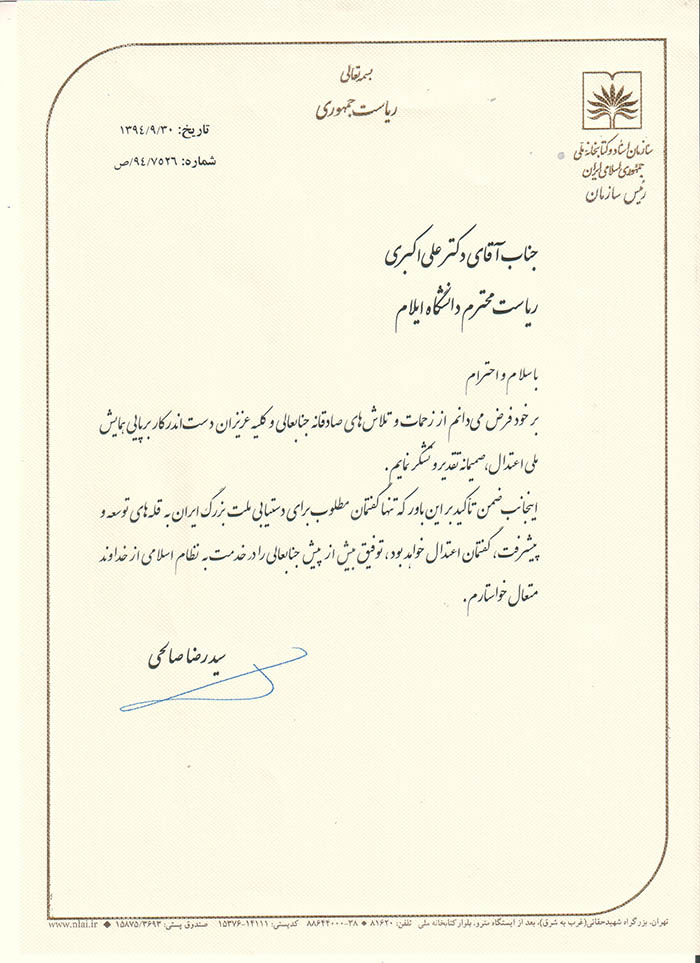 بسمه تعالی
ریاست جمهوری
سازمان اسناد و کتابخانه ملی
جمهوری اسلامی ایران
رئیس سازمان
تاریخ: ۱۳۹٤/۹/۳۰
شماره: ۹٤/۷٥۲٦/ص
جناب آقای دکتر علی اکبری
ریاست محترم دانشگاه ایلام
با سلام و احترام
بر خود فرض می‌دانم از زحمات و تلاش‌های صادقانه جنابعالی و کلیه عزیزان دست‌اندرکار برپایی همایش
ملی اعتدال، صمیمانه تقدیر و تشکر نمایم.
اینجانب ضمن تأکید بر این باور که تنها گفتمان مطلوب برای دستیابی ملت بزرگ ایران به قله‌های توسعه و
پیشرفت، گفتمان اعتدال خواهد بود، توفیق بیش از پیش جنابعالی را در خدمت به نظام اسلامی از خداوند
متعال خواستارم.
سید رضا صالحی
تهران، بزرگراه شهیدحقانی(غرب به شرق)، بعد از ایستگاه مترو، بلوار کتابخانه ملی تلفن: ۸۱۶۲۰ ◆ ۳۸-۸۸۶۴۴۰۰۰ کدپستی: ۱۴۱۱۱-۱۵۳۷۶ صندوق پستی: ۱۵۸۷۵/۳۶۹۳ ◆ www.nlai.ir